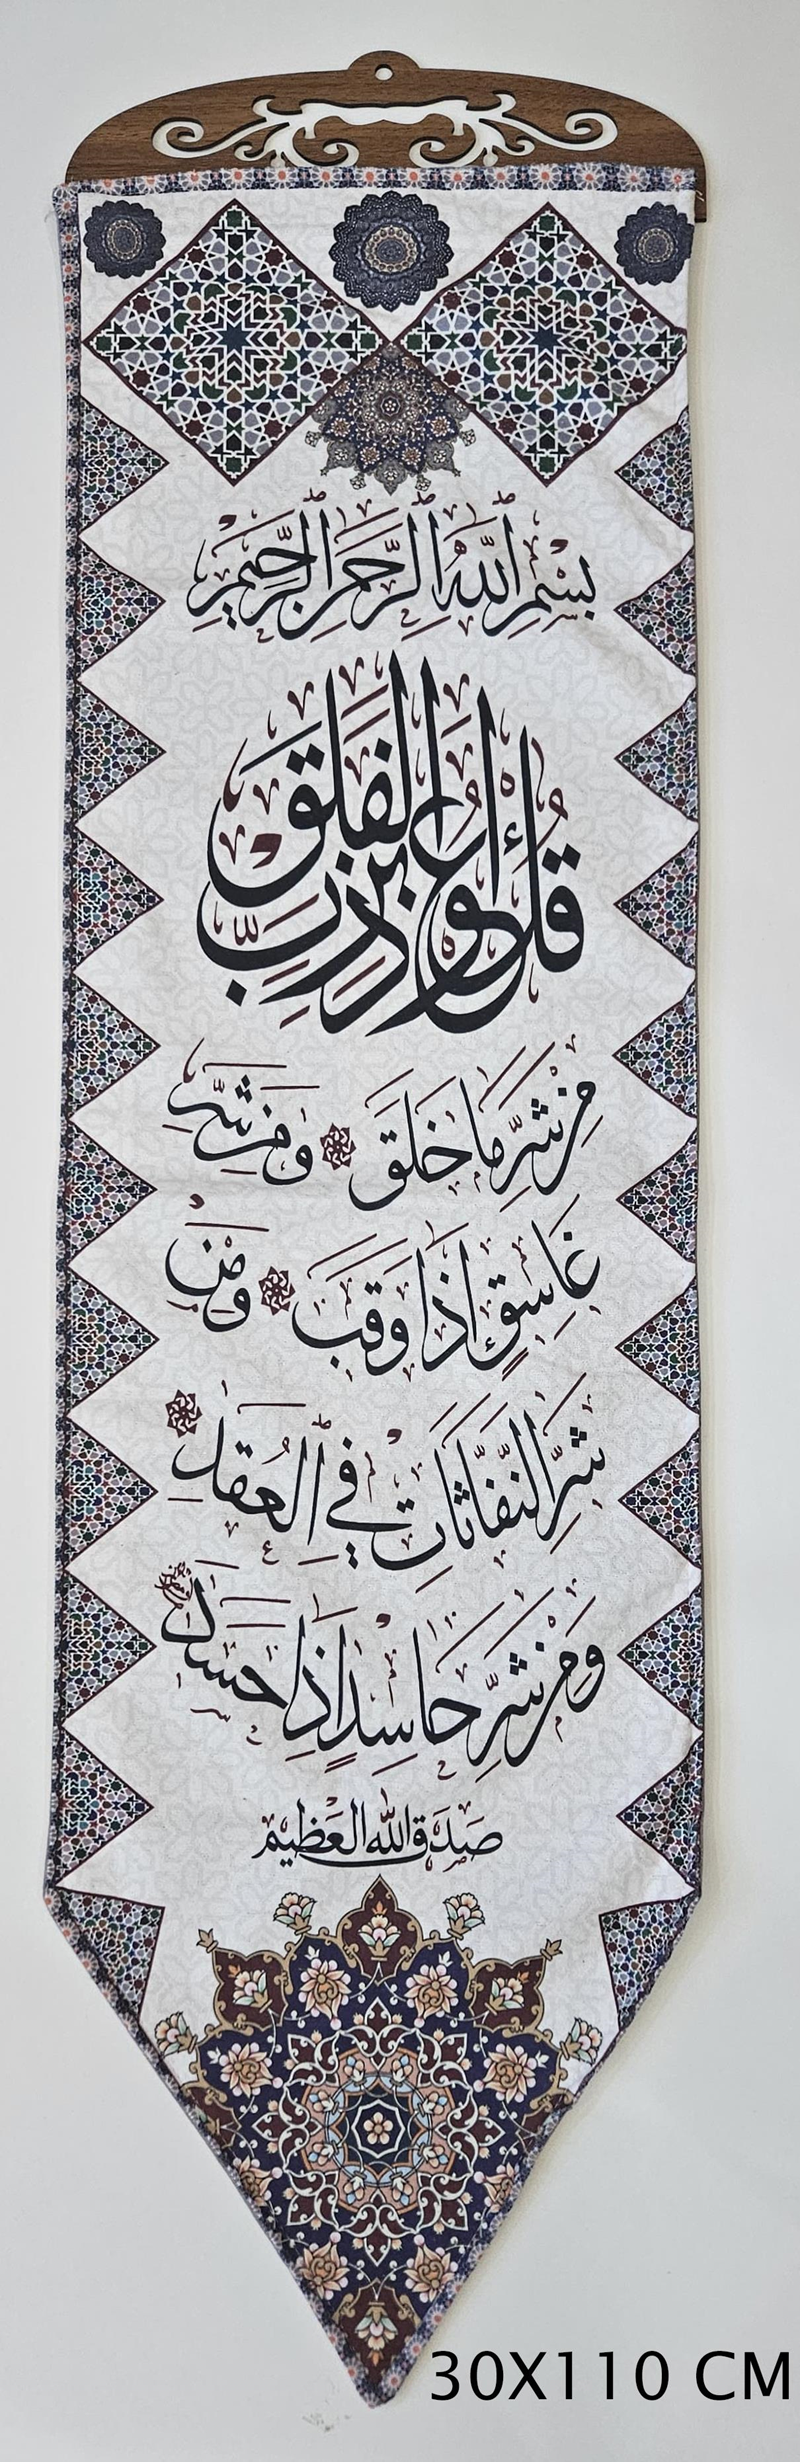 بِسْمِ ٱللَّهِ ٱلرَّحْمَٰنِ ٱلرَّحِيمِ
قُلْ أَعُوذُ بِرَبِّ الْفَلَقِ
مِنْ شَرِّ مَا خَلَقَ وَمِنْ شَرِّ
غَاسِقٍ إِذَا وَقَبَ وَمِنْ
شَرِّ النَّفَّاثَاتِ فِي الْعُقَدِ
وَمِنْ شَرِّ حَاسِدٍ إِذَا حَسَدَ
صَدَقَ اللَّهُ الْعَظِيم
30X110 CM